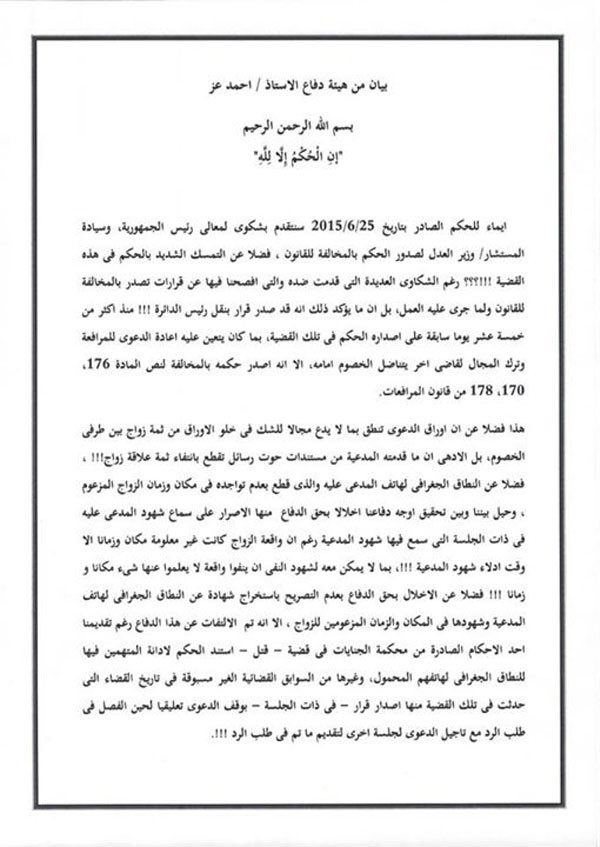 بيان من هيئة دفاع الاستاذ / احمد عز
بسم الله الرحمن الرحيم
"إنِ الْحُكْمُ إِلَّا لِلَّهِ"
ايماء للحكم الصادر بتاريخ 2015/6/25 سنتقدم بشكوى لمعالى رئيس الجمهورية، وسيادة
المستشار/ وزير العدل لصدور الحكم بالمخالفة للقانون ، فضلا عن التمسك الشديد بالحكم فى هذه
القضية !!!؟؟؟ رغم الشكاوى العديدة التى قدمت ضده والتى افصحنا فيها عن قرارات تصدر بالمخالفة
للقانون ولما جرى عليه العمل، بل ان ما يؤكد ذلك انه قد صدر قرار بنقل رئيس الدائرة !!! منذ اكثر من
خمسة عشر يوما سابقة على اصداره الحكم فى تلك القضية، بما كان يتعين عليه اعادة الدعوى للمرافعة
وترك المجال لقاضى اخر يتناضل الخصوم امامه، الا انه اصدر حكمه بالمخالفة لنص المادة 176،
170، 178 من قانون المرافعات.
هذا فضلا عن ان اوراق الدعوى تنطق بما لا يدع مجالا للشك فى خلو الاوراق من ثمة زواج بين طرفى
الخصوم، بل الادهى ان ما قدمته المدعية من مستندات حوت رسائل تقطع بانتفاء ثمة علاقة زواج!!! ،
فضلا عن النطاق الجغرافى لهاتف المدعى عليه والذى قطع بعدم تواجده فى مكان وزمان الزواج المزعوم
، وحيل بيننا وبين تحقيق اوجه دفاعنا اخلالا بحق الدفاع منها الاصرار على سماع شهود المدعى عليه
فى ذات الجلسة التى سمع فيها شهود المدعية رغم ان واقعة الزواج كانت غير معلومة مكان وزمانا الا
وقت ادلاء شهود المدعية !!!، بما لا يمكن معه لشهود النفى ان ينفوا واقعة لا يعلموا عنها شىء مكانا و
زمانا !!! فضلا عن الاخلال بحق الدفاع بعدم التصريح باستخراج شهادة عن النطاق الجغرافى لهاتف
المدعية وشهودها فى المكان والزمان المزعومين للزواج ، الا انه تم الالتفات عن هذا الدفاع رغم تقديمنا
احد الاحكام الصادرة من محكمة الجنايات فى قضية – قتل – استند الحكم لادانة المتهمين فيها
للنطاق الجغرافى لهاتفهم المحمول، وغيرها من السوابق القضائية الغير مسبوقة فى تاريخ القضاء التى
حدثت فى تلك القضية منها اصدار قرار – فى ذات الجلسة – بوقف الدعوى تعليقيا لحين الفصل فى
طلب الرد مع تاجيل الدعوى لجلسة اخرى لتقديم ما تم فى طلب الرد !!!.